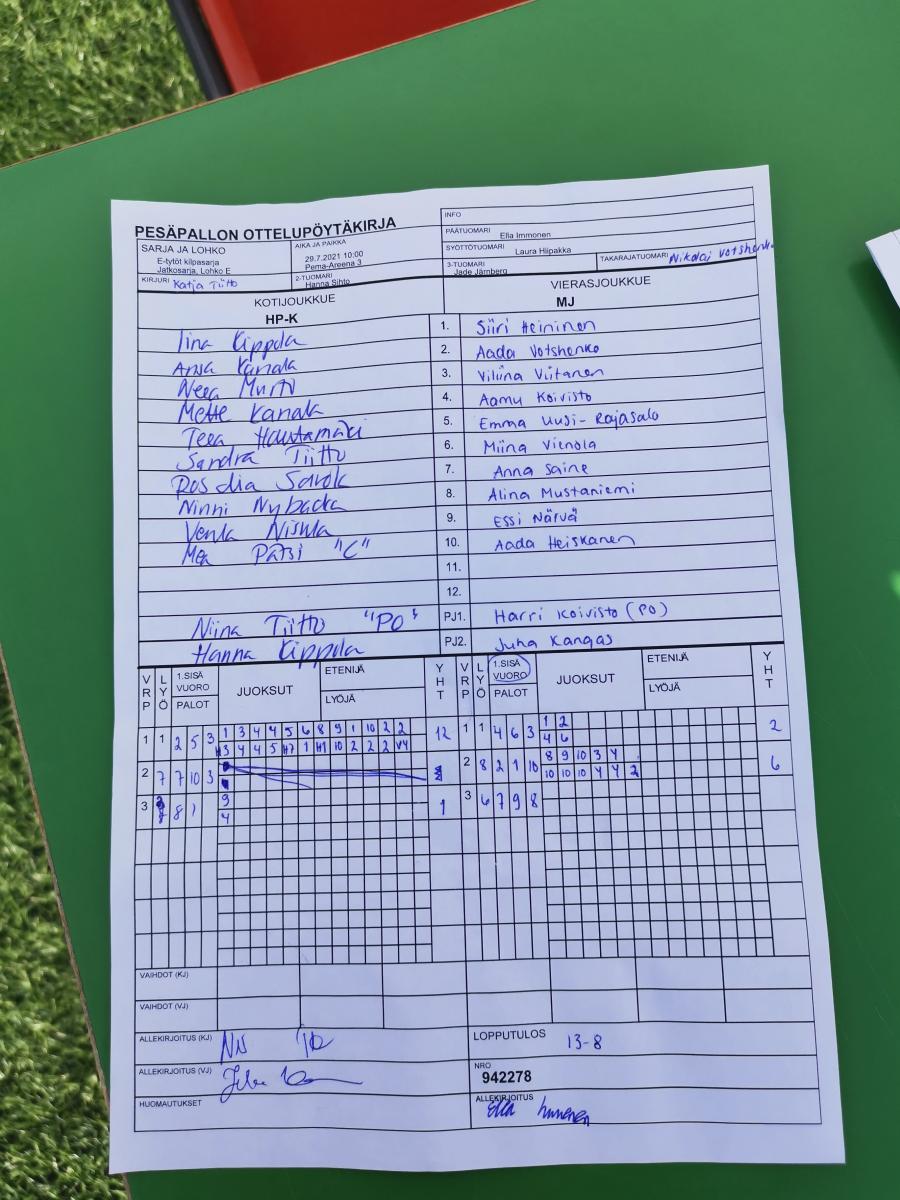 PESÄPALLON OTTELUPÖYTÄKIRJA
INFO
SARJA JA LOHKO
E-tytöt kilpasarja
Jatkosarja, Lohko E
AIKA JA PAIKKA
29.7.2021 10:00
Pema-Areena 3
PÄÄTUOMARI Ella Immonen
SYÖTTÖTUOMARI Laura Hiipakka
KIRJURI Katja Tiitto
2-TUOMARI
Hanna Sihto
3-TUOMARI
Jade Järnberg
TAKARAJATUOMARI Nikolai Votshenko
KOTIJOUKKUE
HP-K
VIERASJOUKKUE
MJ
Iina Kippola 1. Siiri Heininen
Ansa Kanala 2. Aada Votshenko
Neea Murto 3. Viliina Viitanen
Mette Kanala 4. Aamu Koivisto
Teea Hautamäki 5. Emma Uusi-Rajasalo
Sandra Tiitto 6. Miina Vienola
7. Anna Saine
Ninni Nybacka 8. Alina Mustaniemi
Venla Nisula 9. Essi Närvä
Mea Pätsi "C" 10. Aada Heiskanen
11.
12.
Niina Tiitto "PO" PJ1. Harri Koivisto (PO)
Hanna Kippola PJ2. Juha Kangas
VRP LYÖ 1.SISÄ VUORO PALOT JUOKSUT ETENIJÄ LYÖJÄ YHT
VRP LYÖ 1.SISÄ VUORO PALOT JUOKSUT ETENIJÄ LYÖJÄ YHT
1 1 2 5 3 1 3 4 4 5 6 8 9 1 10 2 2 12
H3 4 4 5 H7 1 H1 10 2 2 2 V4
1 1 4 6 3 1 2 2
4 6
2 7 7 10 3
2 8 2 1 10 8 9 10 3 4 6
10 10 10 4 4 2
3 8 1 9 1
4
3 6 7 9 8
VAIHDOT (KJ)
VAIHDOT (VJ)
ALLEKIRJOITUS (KJ)
LOPPUTULOS 13-8
ALLEKIRJOITUS (VJ)
NRO
942278
HUOMAUTUKSET
ALLEKIRJOITUS
Ella Immonen